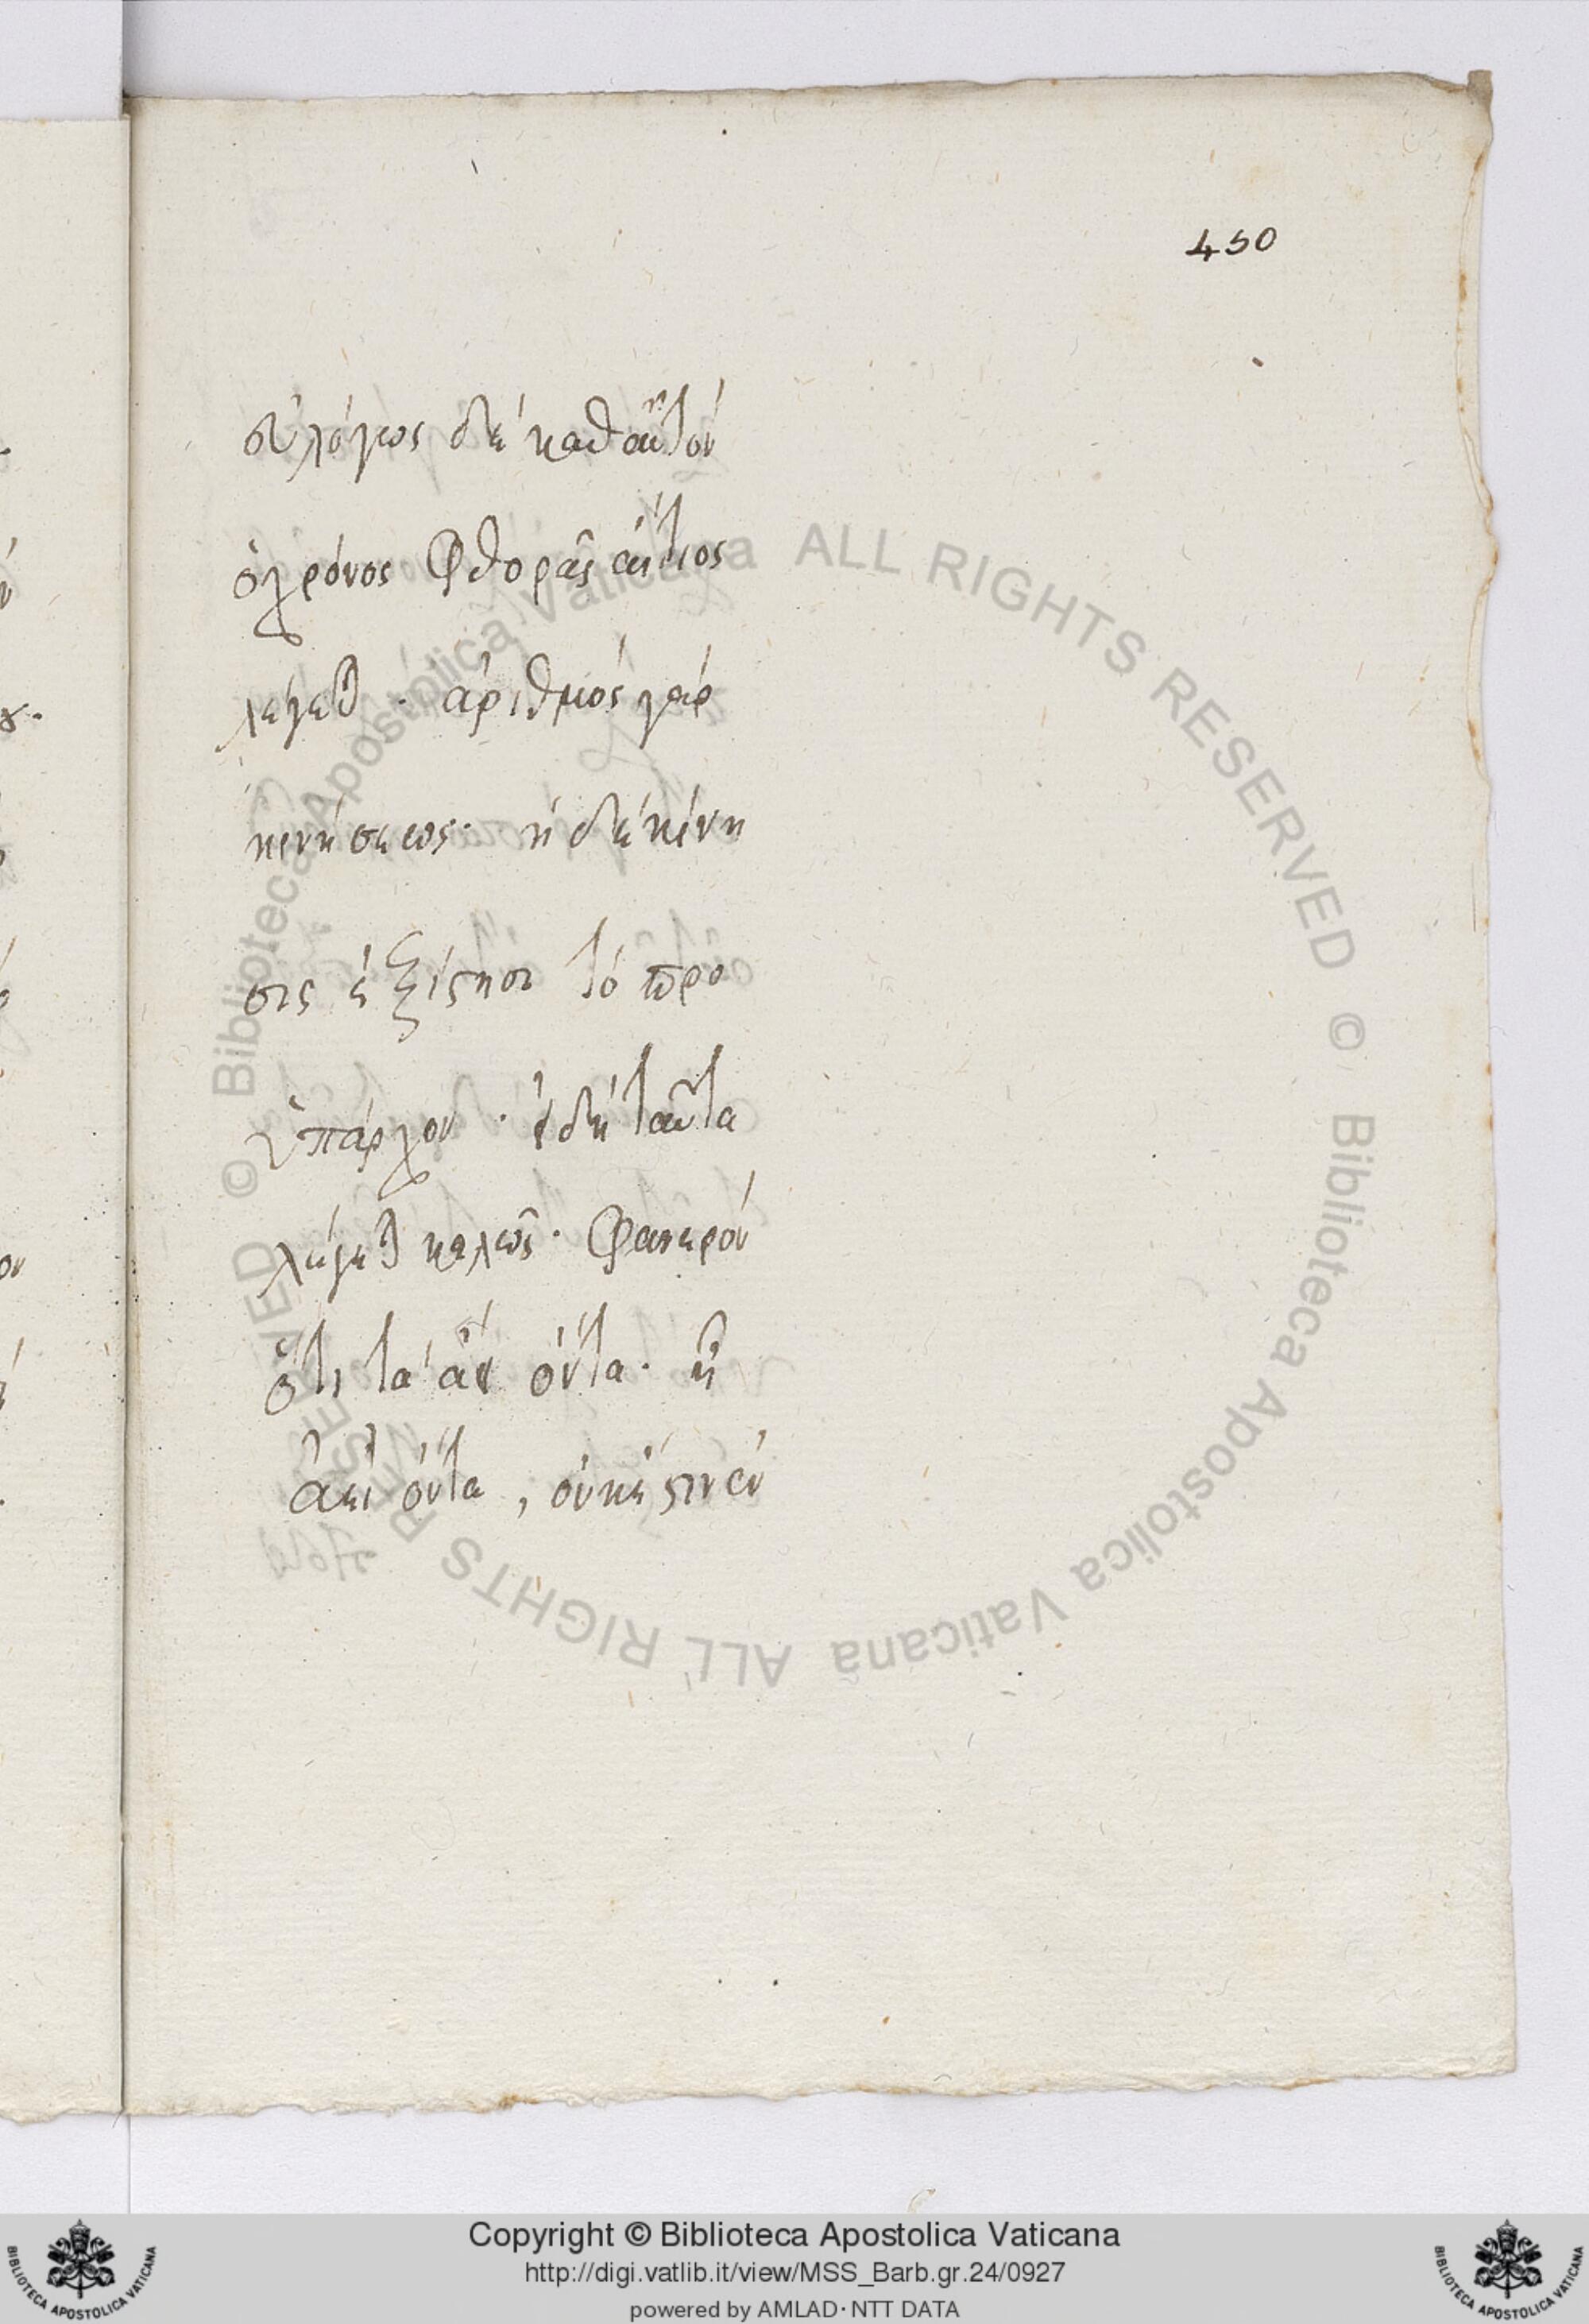 450
εὐλόγως δὲ καθ' αὑτὸν
ὁ χρόνος φθορᾶς αἴτιος
λέγεται· ἀριθμὸς γὰρ
κινήσεως· ἡ δὲ κίνη
σις ἐξίστησι τὸ προ
ὑπάρχον· εἰ δὴ ταῦτα
λέγεται καλῶς· φανερὸν
ὅτι τὰ ἀεὶ ὄντα· ᾗ
ἀεὶ ὄντα, οὐκ ἔστιν ἐν
© Biblioteca Apostolica Vaticana ALL RIGHTS RESERVED © Biblioteca Apostolica Vaticana ALL RIGHTS RESERVED
Copyright © Biblioteca Apostolica Vaticana
http://digi.vatlib.it/view/MSS_Barb.gr.24/0927
powered by AMLAD·NTT DATA
BIBLIOTECA APOSTOLICA VATICANA
BIBLIOTECA APOSTOLICA VATICANA